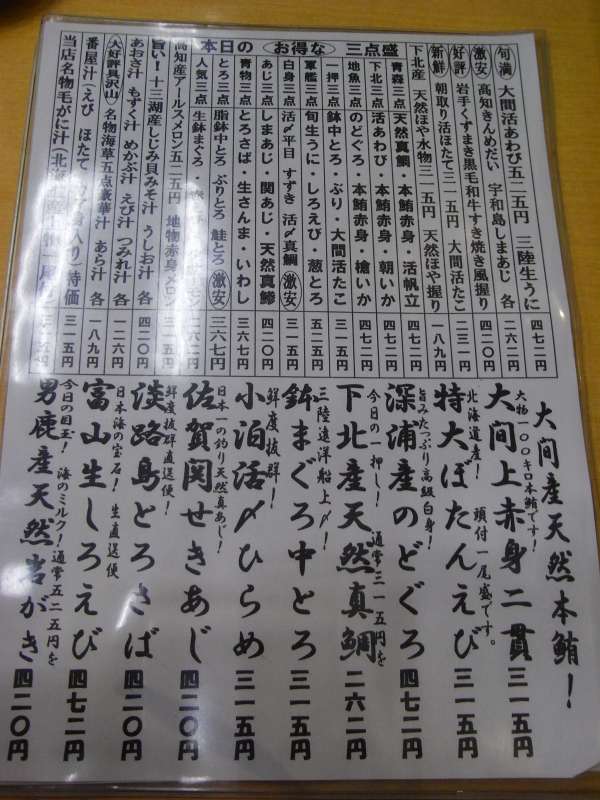 旬満 大間活あわび五二五円 三陸生うに 四七二円
激安 高知きんめだい 宇和島しまあじ 各 二六二円
好評 岩手くずまき黒毛和牛すき焼き風握り 四二〇円
新鮮 朝取り活ほたて三一五円 大間活たこ 二三一円
下北産 天然ほや水物三一五円 天然ほや握り 一八九円
本日の お得な 三点盛
青森三点 天然真鯛・本鮪赤身・活帆立 四七二円
下北三点 活あわび・本鮪赤身・朝いか 四七二円
地魚三点 のどぐろ・本鮪赤身・槍いか 四七二円
一押三点 鉢中とろ・ぶり・大間活たこ 三三〇円
軍艦三点 旬生うに・しろえび・葱とろ 五二五円
白身三点 活〆平目 すずき 活〆真鯛 激安 三一五円
あじ三点 しまあじ・関あじ・天然真鯵 四二〇円
青物三点 とろさば・生さんま・いわし 三六七円
とろ三点 脂鉢中とろ ぶりとろ 鮭とろ 激安 三六七円
人気三点 生鉢まぐろ・ 二六二円
高知産アールスメロン五二五円 地物赤身メロン
旨い!十三湖産しじみ貝みそ汁 うしお汁 各 四二〇円
あおさ汁 もずく汁 めかぶ汁 えび汁 つみれ汁 各 一二六円
大好評具沢山 名物海草五点豪華汁 あら汁 各 一八九円
番屋汁(えび ほたて 入り)特価 三一五円
当店名物毛がに汁(北海
大間産天然本鮪!
大物一〇〇キロ本鮪です!
大間上赤身二貫 三一五円
北海道産! 頭付一尾盛です。
特大ぼたんえび 三一五円
旨みたっぷり高級白身!
深浦産のどぐろ 四七二円
今日の一押し! 通常三一五円を
下北産天然真鯛 二六二円
三陸遠洋船上〆!
鉢まぐろ中とろ 三一五円
鮮度抜群!
小泊活〆ひらめ 三一五円
日本一の釣り天然真あじ!
佐賀関せきあじ 四二〇円
鮮度抜群直送便!
淡路島とろさば 四二〇円
日本海の宝石! 生直送便
富山生しろえび 四七二円
今日の目玉! 海のミルク!通常五二五円を
男鹿産天然岩がき 四二〇円